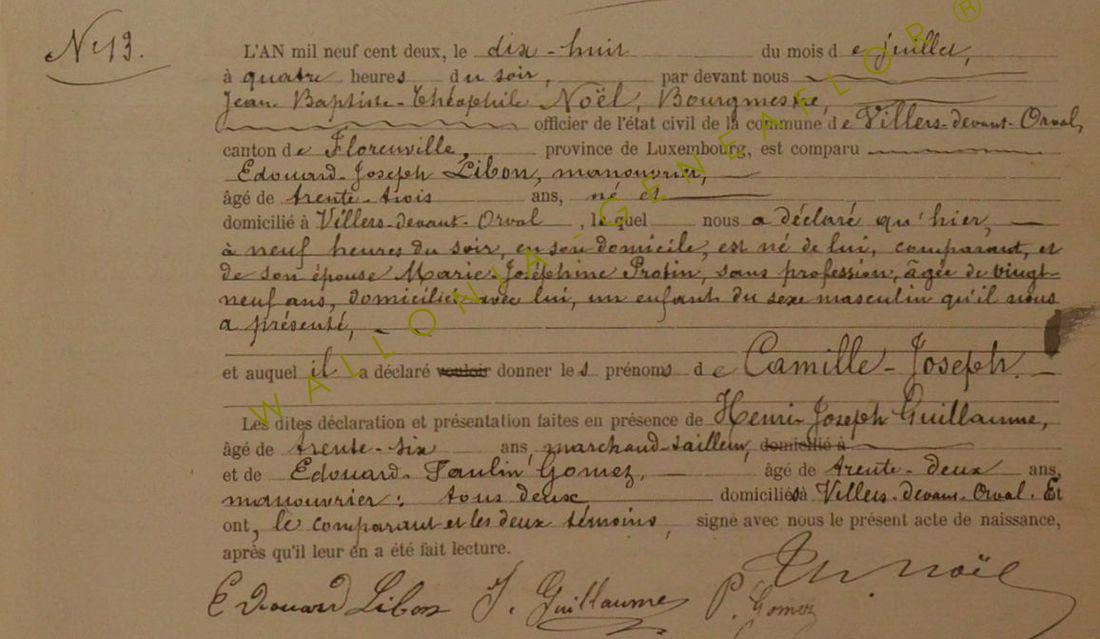 N° 13.
L'AN mil neuf cent deux, le dix-huit du mois de juillet,
à quatre heures du soir, par devant nous
Jean Baptiste-Théophile Noël, Bourgmestre,
officier de l'état civil de la commune de Villers-devant-Orval,
canton de Florenville, province de Luxembourg, est comparu
Edouard-Joseph Libon, manouvrier,
âgé de trente-trois ans, né et
domicilié à Villers-devant-Orval, lequel nous a déclaré qu'hier,
à neuf heures du soir, en son domicile, est né de lui, comparant, et
de son épouse Marie-Joséphine Protin, sans profession, âgée de vingt-
neuf ans, domiciliée avec lui, un enfant du sexe masculin qu'il nous
a présenté,
et auquel il a déclaré vouloir donner les prénoms de Camille-Joseph.
Les dites déclaration et présentation faites en présence de Henri-Joseph Guillaume,
âgé de trente-six ans, marchand-tailleur, domicilié à
et de Edouard-Paulin Gomez, âgé de trente-deux ans,
manouvrier; tous deux domiciliés à Villers-devant-Orval. Et
ont, le comparant et les deux témoins, signé avec nous le présent acte de naissance,
après qu'il leur en a été fait lecture.
Th. Noël
Edouard Libon J. Guillaume P. Gomez
WALLONIA-GENEAFLOR ®